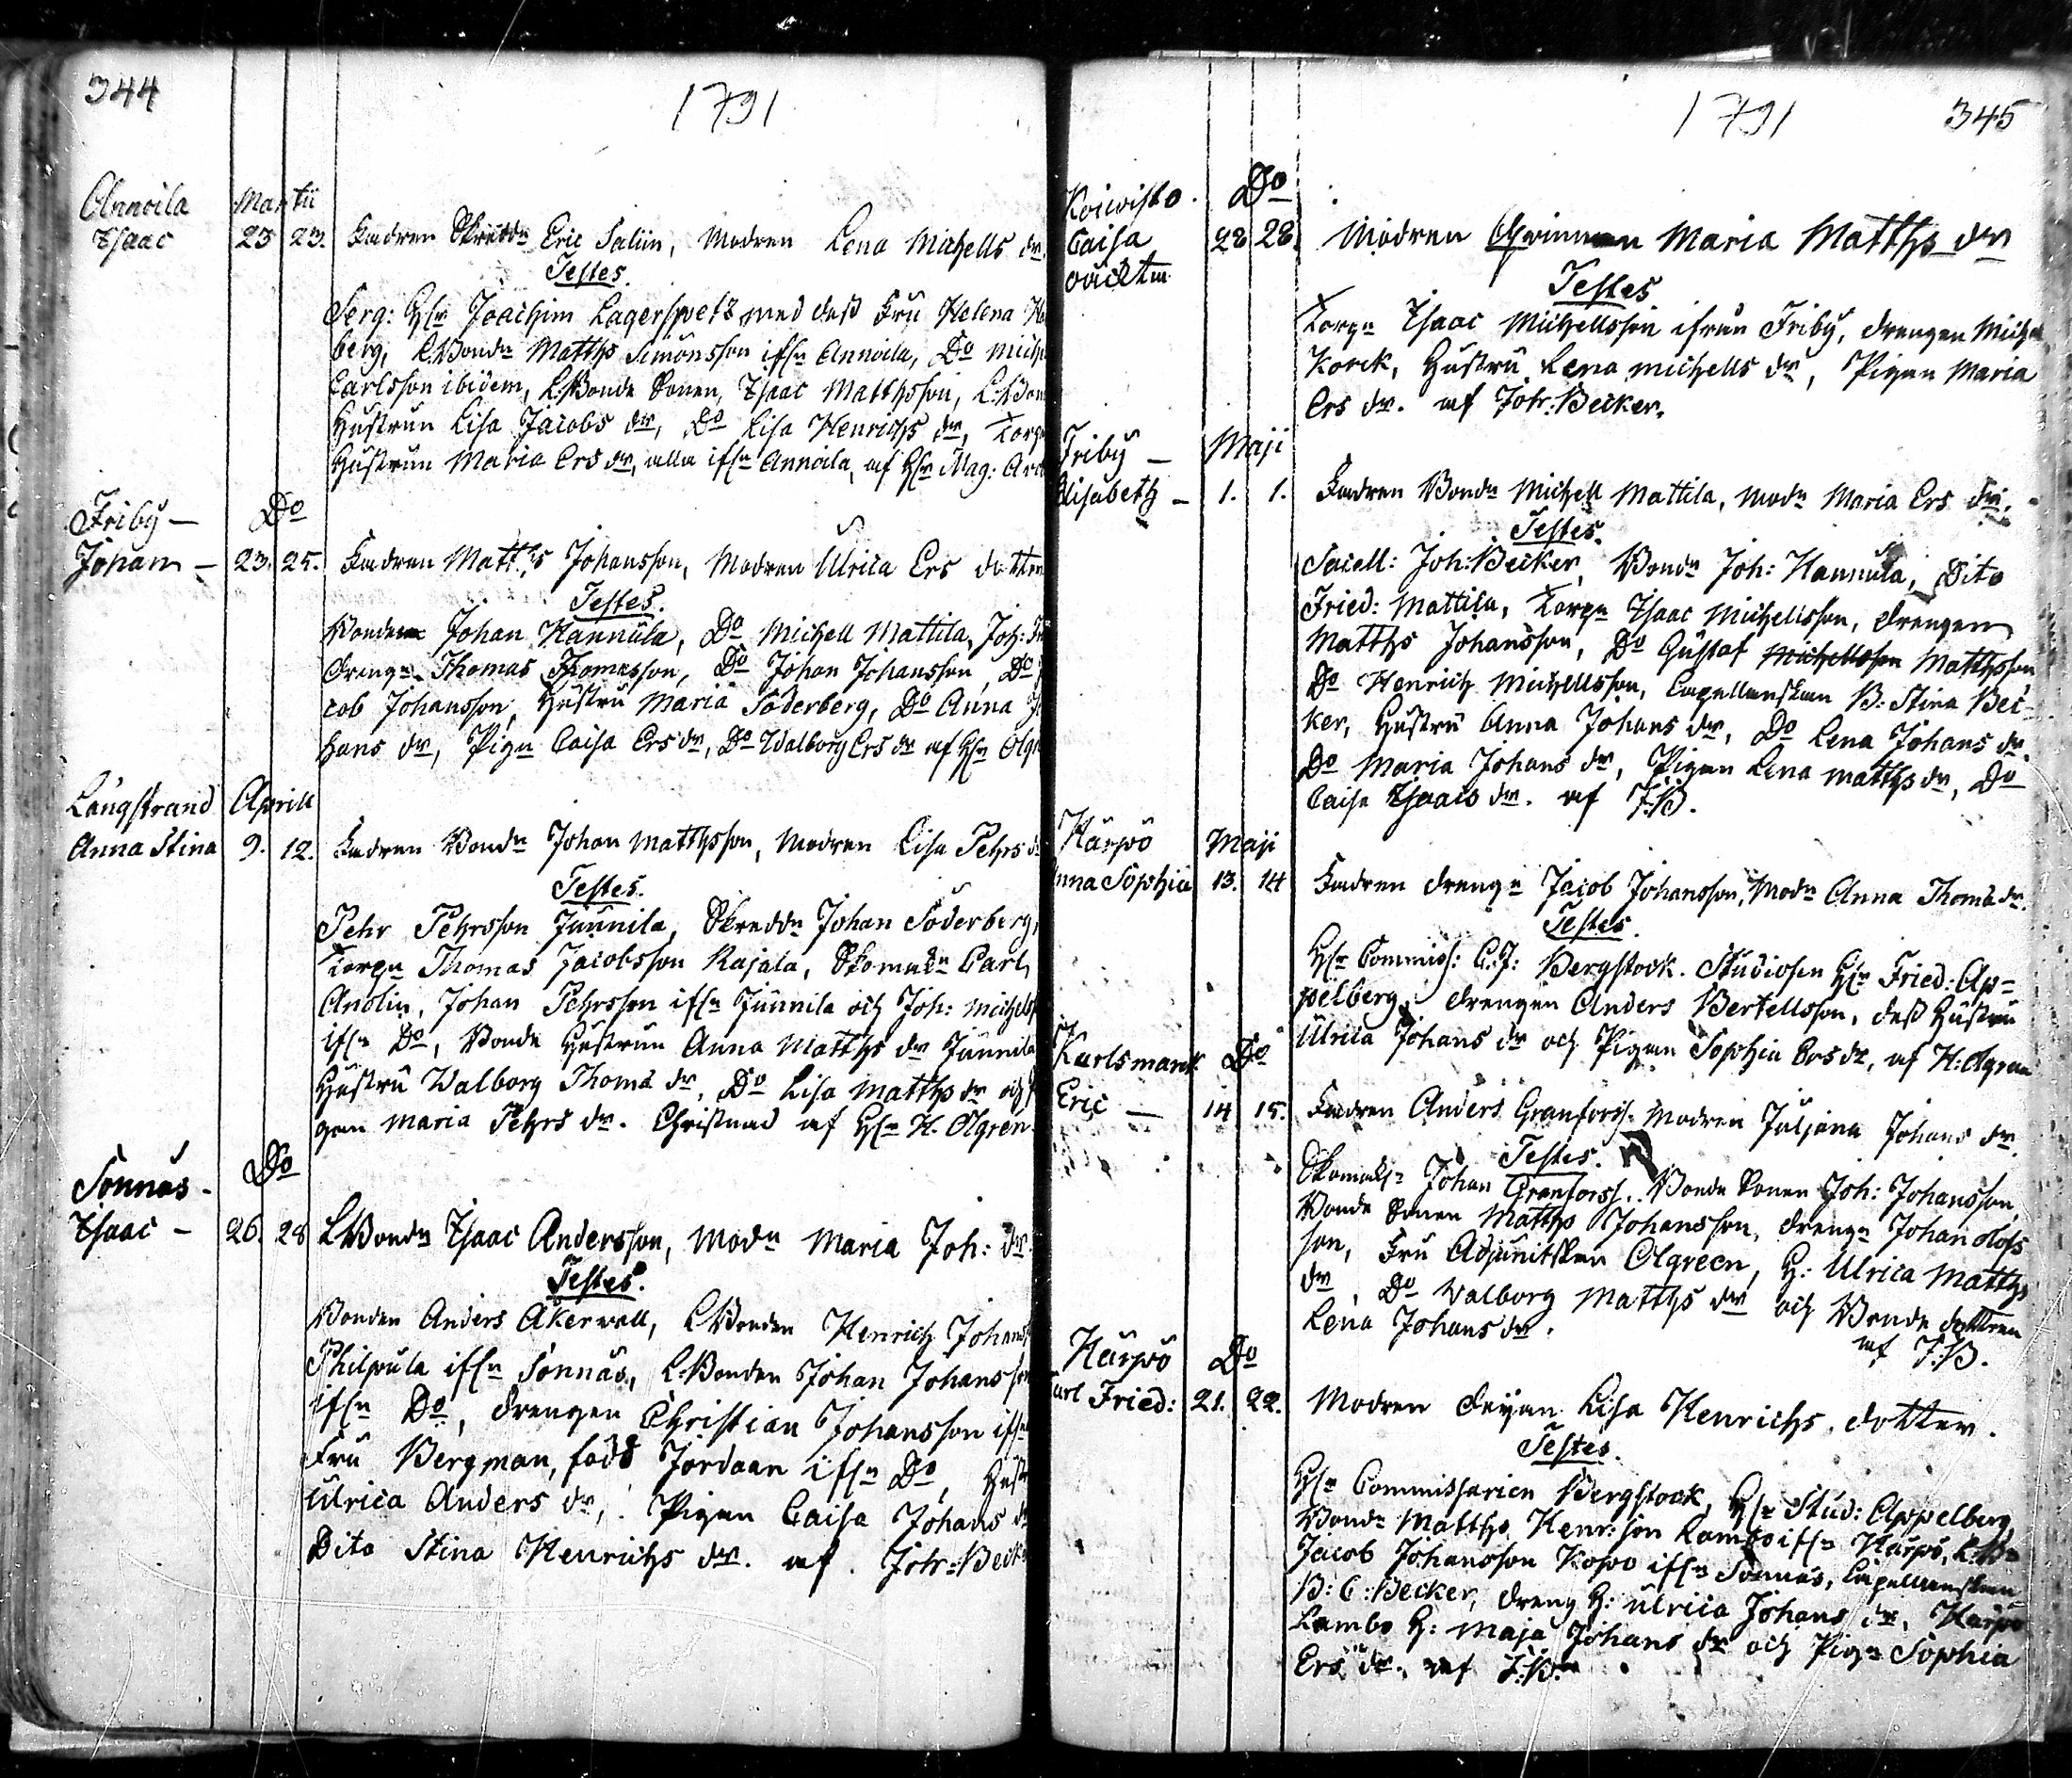 344
1791
Annoila Martii
Isaac 23 23. Fadren Skreddn Eric Salün, Modren Lena Michells dr.
Testes.
Serg: Hr Joachim Lagerspetz med dess Fru Helena
berg, LBondn Matths Simonsson ifrn Annoila, Do Mich
Carlsson ibidem, L:Bonde Sonen, Isaac Matthsson, L:Bon
Hustrun Lisa Jacobs dr, Do Lisa Henrichs dr, Torp
Hustrun Maria Ers dr, alla ifrn Annoila, af Hr Mag:
Friby — Do
Johan — 23. 25. Fadren Matths Johansson, Modren Ulrica Ers dotter
Testes.
Bonden Johan Hannula, Do Michell Mattila, Joh:
drengn Thomas Thomasson, Do Johan Johansson, Do
cob Johansson, Hustru Maria Söderberg, Do Anna
hans dr, Pign Caisa Ers dr, Do Walborg Ers dr af Hr Olgr
Långstrand Aprill
Anna Stina 9. 12. Fadren Bondn Johan Matthsson, Modren Lisa Pehrs d
Testes.
Pehr Pehrsson Junnila, Skreddn Johan Söderberg,
Torpn Thomas Jacobsson Rajala, Skomakn Carl
Anolin, Johan Pehrsson ifrn Junnila och Joh: Michells
ifrn Do, Bonde Hustrun Anna Matths dr Junnila
Hustru Walborg Thomæ dr, Do Lisa Matths dr och
gan Maria Pehrs dr. Christnad af Hr H. Olgren
Sonnäs - Do
Isaac — 26. 28 LBondn Isaac Andersson, Modn Maria Joh: dr.
Testes.
Bonden Anders Åkerwall, LBonden Henrich Johans
Philpula ifrn Sonnäs, L:Bonden Johan Johansson
ifrn Do, drengen Christian Johansson ifrn
Fru Bergman, född Jordaan ifrn Do, Hust
Ulrica Anders dr, Pigan Caisa Johans dr
Dito Stina Henrichs dr. af Joh:Beck
1791 345
Koiwisto. Do
Caisa 28 28. Modren Qwinnan Maria Matths dr
oäckta
Testes
Torpn Isaac Michellsson ifrån Friby, drengen Mich
Korck, Hustru Lena Michells dr, Pigan Maria
Ers dr. af Joh:Becker.
Friby — Maji
Elisabeth — 1. 1. Fadren Bondn Michell Mattila, Modn Maria Ers dr.
Testes.
Sacell: Joh:Becker, Bondn Joh: Hannula, Dito
Fried: Mattila, Torpn Isaac Michellsson, drengen
Matths Johansson, Do Gustaf Michellsson Matthsson
Do Henrich Michellsson, Capellanskan B: Stina Bec-
ker, Hustru Anna Johans dr, Do Lena Johans dr.
Do Maria Johans dr, Pigan Lena Matths dr, Do
Caisa Isaacs dr. af J:B.
Harpö Maji
Anna Sophia 13. 14 Fadren drengn Jacob Johansson, Modn Anna Thomæ dr.
Testes.
Hr Commiss: C:J: Bergstock. Studiosen Hr Fried: Ap=
pelberg, drengen Anders Bertellsson, dess Hustru
Ulrica Johans dr och Pigan Sophia Ers dr, af H. Olgren
Karlsmark Do
Eric — 14 15. Fadren Anders Granforss. Modren Juljana Johans dr.
Testes.
Skomakr Johan Granforss. Bonde Sonen Joh: Johansson,
Bonde Sonen Matths Johansson, drengn Johan Olofs
son, Fru Adjunctskan Olgreen, H: Ulrica Matths
dr, Do Walborg Matths dr och Bonde dottren
Lena Johans dr. af J:B.
Harpö Do
Carl Fried: 21. 22. Modren Pigan Lisa Henrichs dotter.
Testes.
Hr Commissarien Bergstock, Hr Stud: Appelberg,
Bondn Matths Henr:son Lambo ifrn Harpö, L:Bn
Jacob Johansson Kopo ifrn Sonnäs, Capellanskan
B: C:Becker, dreng H: Ulrica Johans dr, Harpö
Lambo H: Maja Johans dr och Pign Sophia
Ers dr. af J:B.